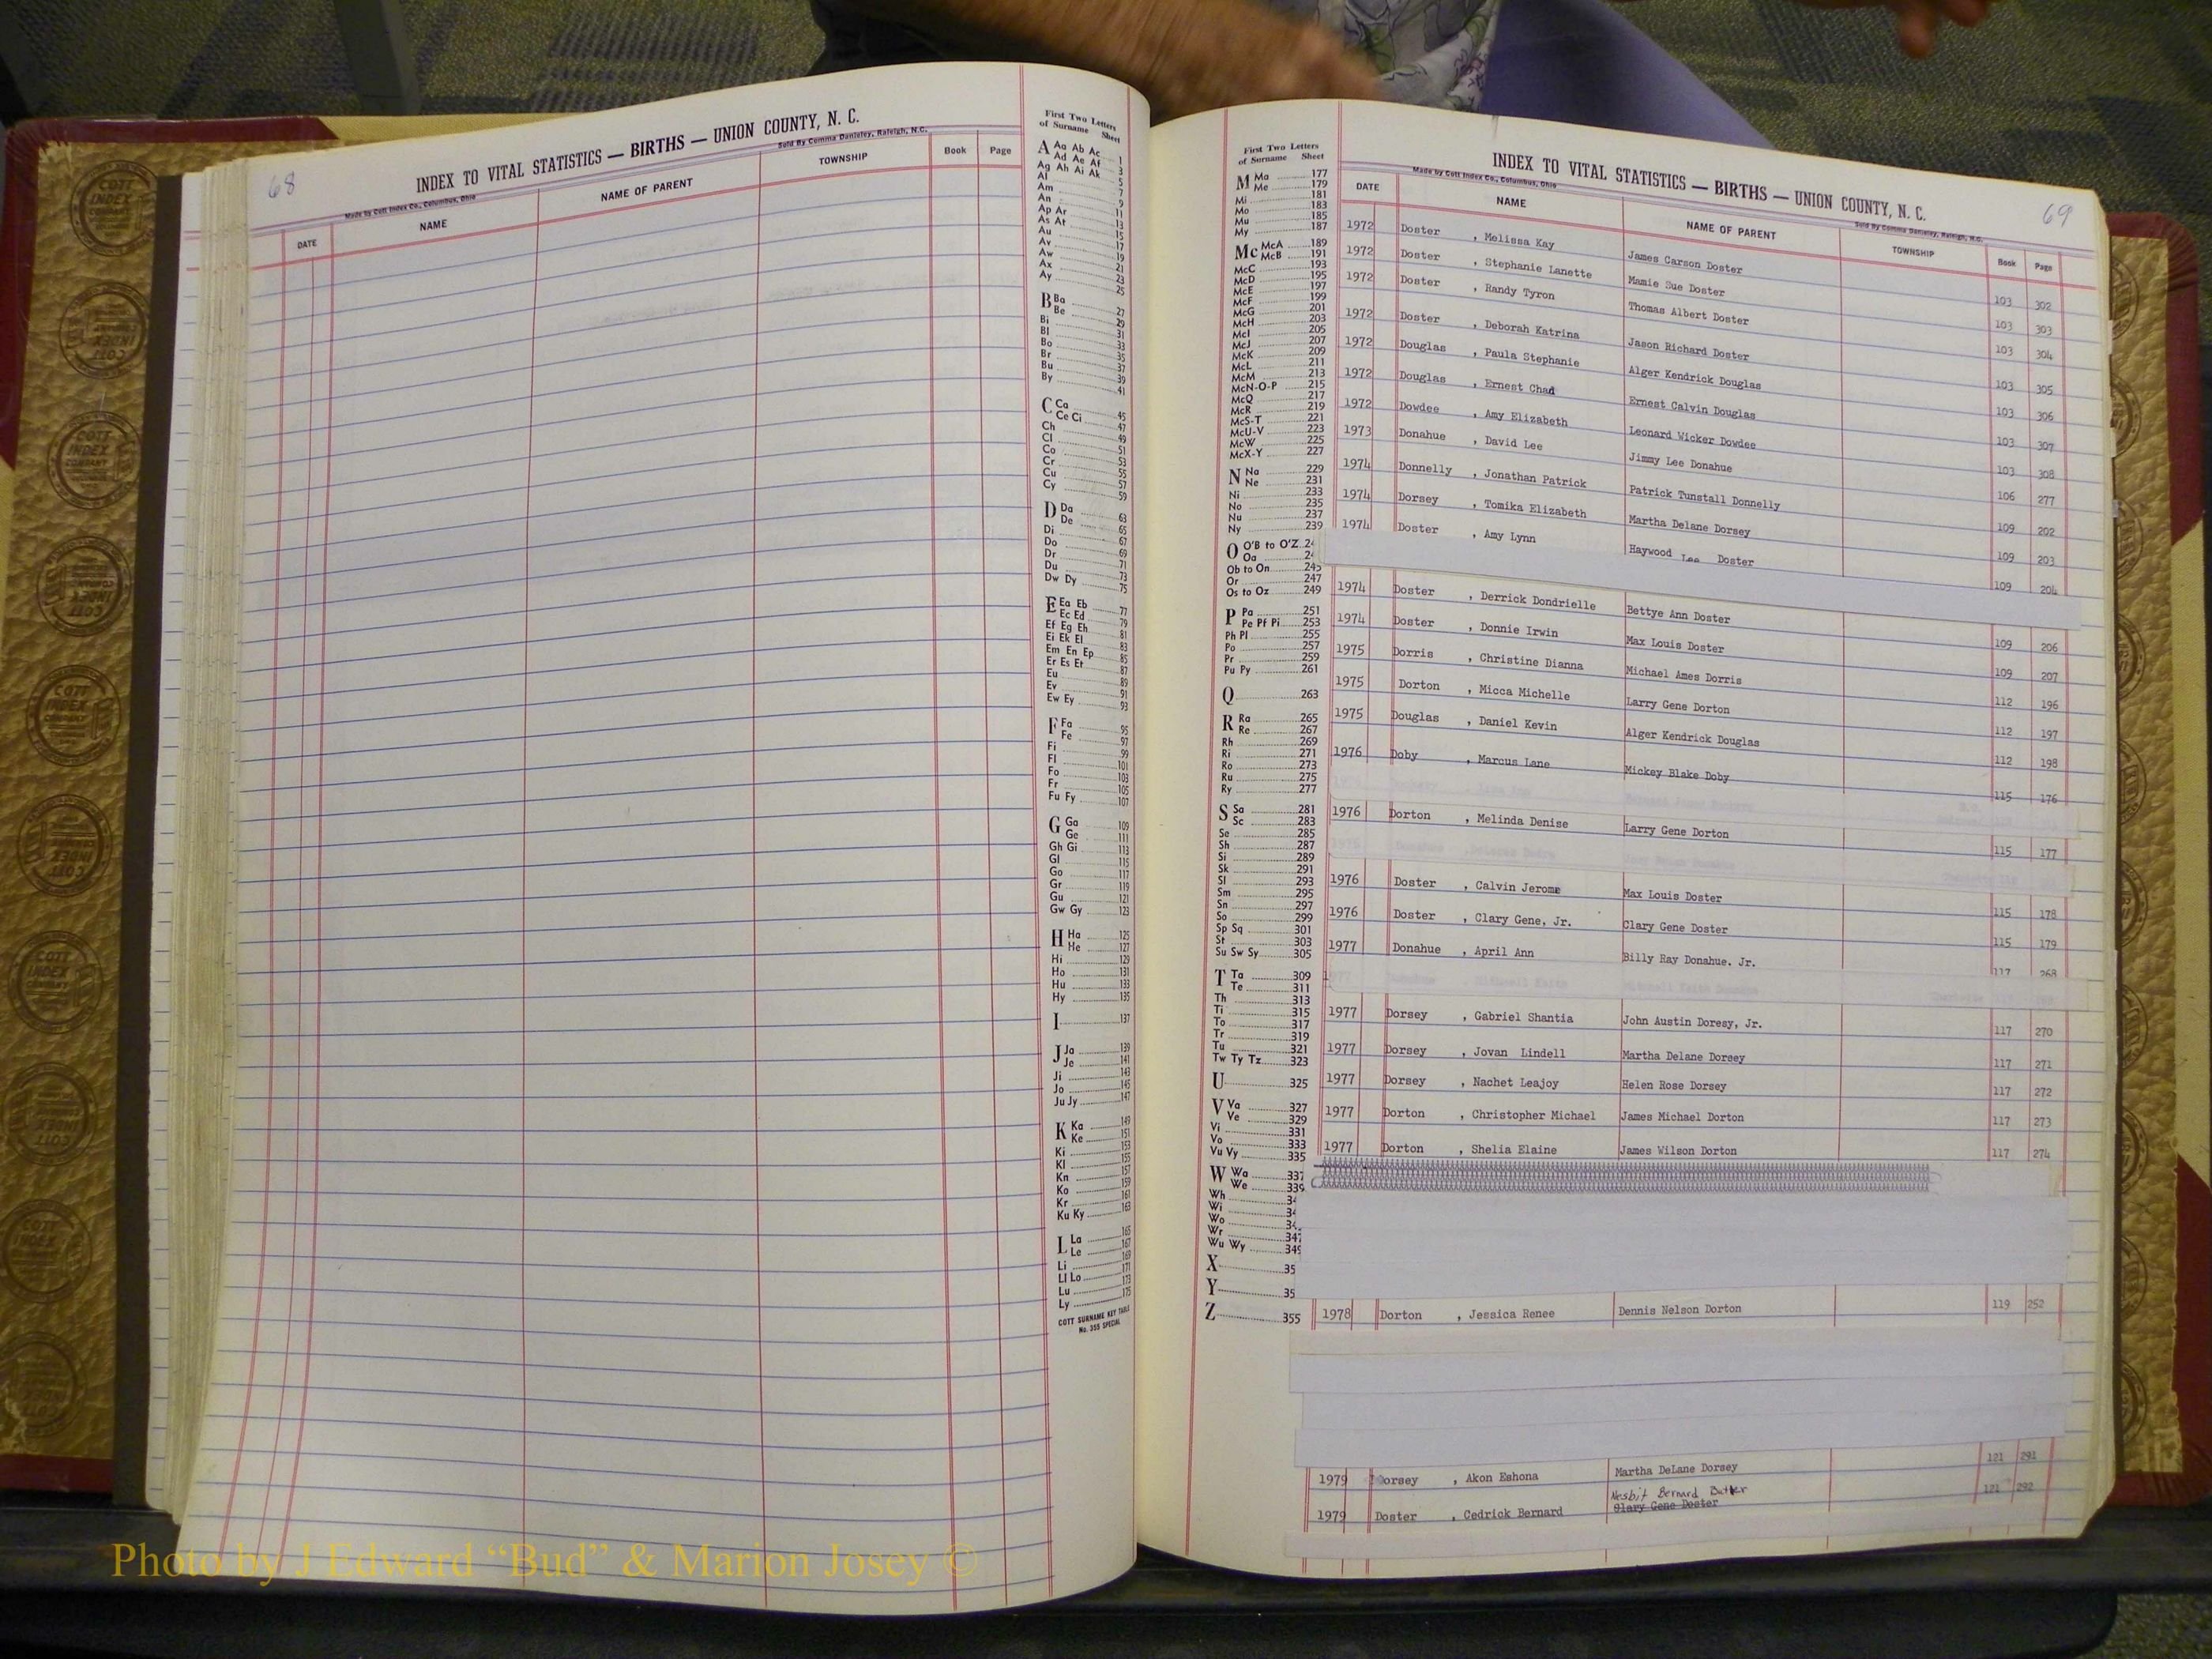 68
INDEX TO VITAL STATISTICS — BIRTHS — UNION COUNTY, N. C.
Made by Cott Index Co., Columbus, Ohio
Sold By Comma Danieley, Raleigh, N.C.
DATE NAME NAME OF PARENT TOWNSHIP Book Page
First Two Letters
of Surname Sheet
A Aa Ab Ac 1
Ad Ae Af 3
Ag Ah Ai Ak 5
Al 7
Am 9
An 11
Ap Ar 13
As At 15
Au 17
Av 19
Aw 21
Ax 23
Ay 25
B Ba 27
Be 29
Bi 31
Bl 33
Bo 35
Br 37
Bu 39
By 41
C Ca 45
Ce Ci 47
Ch 49
Cl 51
Co 53
Cr 55
Cu 57
Cy 59
D Da 63
De 65
Di 67
Do 69
Dr 71
Du 73
Dw Dy 75
E Ea Eb 77
Ec Ed 79
Ef Eg Eh 81
Ei Ek El 83
Em En Ep 85
Er Es Et 87
Eu 89
Ev 91
Ew Ey 93
F Fa 95
Fe 97
Fi 99
Fl 101
Fo 103
Fr 105
Fu Fy 107
G Ga 109
Ge 111
Gh Gi 113
Gl 115
Go 117
Gr 119
Gu 121
Gw Gy 123
H Ha 125
He 127
Hi 129
Ho 131
Hu 133
Hy 135
I 137
J Ja 139
Je 141
Ji 143
Jo 145
Ju Jy 147
K Ka 149
Ke 151
Ki 153
Kl 155
Kn 157
Ko 159
Kr 161
Ku Ky 163
L La 165
Le 167
Li 169
Ll Lo 171
Lu 173
Ly 175
COTT SURNAME KEY TABLE
No. 355 SPECIAL
First Two Letters
of Surname Sheet
M Ma 177
Me 179
Mi 181
Mo 183
Mu 185
My 187
Mc McA 189
McB 191
McC 193
McD 195
McE 197
McF 199
McG 201
McH 203
McI 205
McJ 207
McK 209
McL 211
McM 213
McN-O-P 215
McQ 217
McR 219
McS-T 221
McU-V 223
McW 225
McX-Y 227
N Na 229
Ne 231
Ni 233
No 235
Nu 237
Ny 239
O O'B to O'Z 24
Oa 24
Ob to On 245
Or 247
Os to Oz 249
P Pa 251
Pe Pf Pi 253
Ph Pl 255
Po 257
Pr 259
Pu Py 261
Q 263
R Ra 265
Re 267
Rh 269
Ri 271
Ro 273
Ru 275
Ry 277
S Sa 281
Sc 283
Se 285
Sh 287
Si 289
Sk 291
Sl 293
Sm 295
Sn 297
So 299
Sp Sq 301
St 303
Su Sw Sy 305
T Ta 309
Te 311
Th 313
Ti 315
To 317
Tr 319
Tu 321
Tw Ty Tz 323
U 325
V Va 327
Ve 329
Vi 331
Vo 333
Vu Vy 335
W Wa 337
We 339
Wh 34
Wi 34
Wo 34
Wr 347
Wu Wy 349
X 35
Y 35
Z 355
69
INDEX TO VITAL STATISTICS — BIRTHS — UNION COUNTY, N. C.
Made by Cott Index Co., Columbus, Ohio
Sold By Comma Danieley, Raleigh, N.C.
DATE NAME NAME OF PARENT TOWNSHIP Book Page
1972 Doster , Melissa Kay James Carson Doster 103 302
1972 Doster , Stephanie Lanette Mamie Sue Doster 103 303
1972 Doster , Randy Tyron Thomas Albert Doster 103 304
1972 Doster , Deborah Katrina Jason Richard Doster 103 305
1972 Douglas , Paula Stephanie Alger Kendrick Douglas 103 306
1972 Douglas , Ernest Chad Ernest Calvin Douglas 103 307
1972 Dowdee , Amy Elizabeth Leonard Wicker Dowdee 103 308
1973 Donahue , David Lee Jimmy Lee Donahue 106 277
1974 Donnelly , Jonathan Patrick Patrick Tunstall Donnelly 109 202
1974 Dorsey , Tomika Elizabeth Martha Delane Dorsey 109 203
1974 Doster , Amy Lynn Haywood Lee Doster 109 204
1974 Doster , Derrick Dondrielle Bettye Ann Doster 109 206
1974 Doster , Donnie Irwin Max Louis Doster 109 207
1975 Dorris , Christine Dianna Michael Ames Dorris 112 196
1975 Dorton , Micca Michelle Larry Gene Dorton 112 197
1975 Douglas , Daniel Kevin Alger Kendrick Douglas 112 198
1976 Doby , Marcus Lane Mickey Blake Doby 115 176
1976 Dorton , Melinda Denise Larry Gene Dorton 115 177
1976 Doster , Calvin Jerome Max Louis Doster 115 178
1976 Doster , Clary Gene, Jr. Clary Gene Doster 115 179
1977 Donahue , April Ann Billy Ray Donahue. Jr. 117 268
1977 Dorsey , Gabriel Shantia John Austin Doresy, Jr. 117 270
1977 Dorsey , Jovan Lindell Martha Delane Dorsey 117 271
1977 Dorsey , Nachet Leajoy Helen Rose Dorsey 117 272
1977 Dorton , Christopher Michael James Michael Dorton 117 273
1977 Dorton , Shelia Elaine James Wilson Dorton 117 274
1978 Dorton , Jessica Renee Dennis Nelson Dorton 119 252
1979 Dorsey , Akon Eshona Martha DeLane Dorsey 121 291
Nesbit Bernard Butler
1979 Doster , Cedrick Bernard Clary Gene Doster 121 292
Photo by J Edward “Bud” & Marion Josey ©